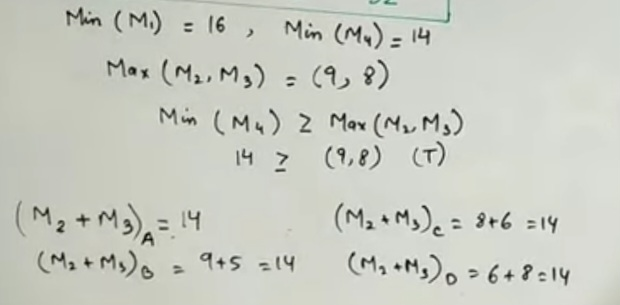 Min (M₁) = 16 , Min (M₄) = 14
Max (M₂, M₃) = (9, 8)
Min (M₄) ≥ Max (M₂, M₃)
14 ≥ (9,8) (T)
(M₂ + M₃)A = 14 (M₂ + M₃)C = 8+6 = 14
(M₂ + M₃)B = 9+5 = 14 (M₂ + M₃)D = 6+8 = 14